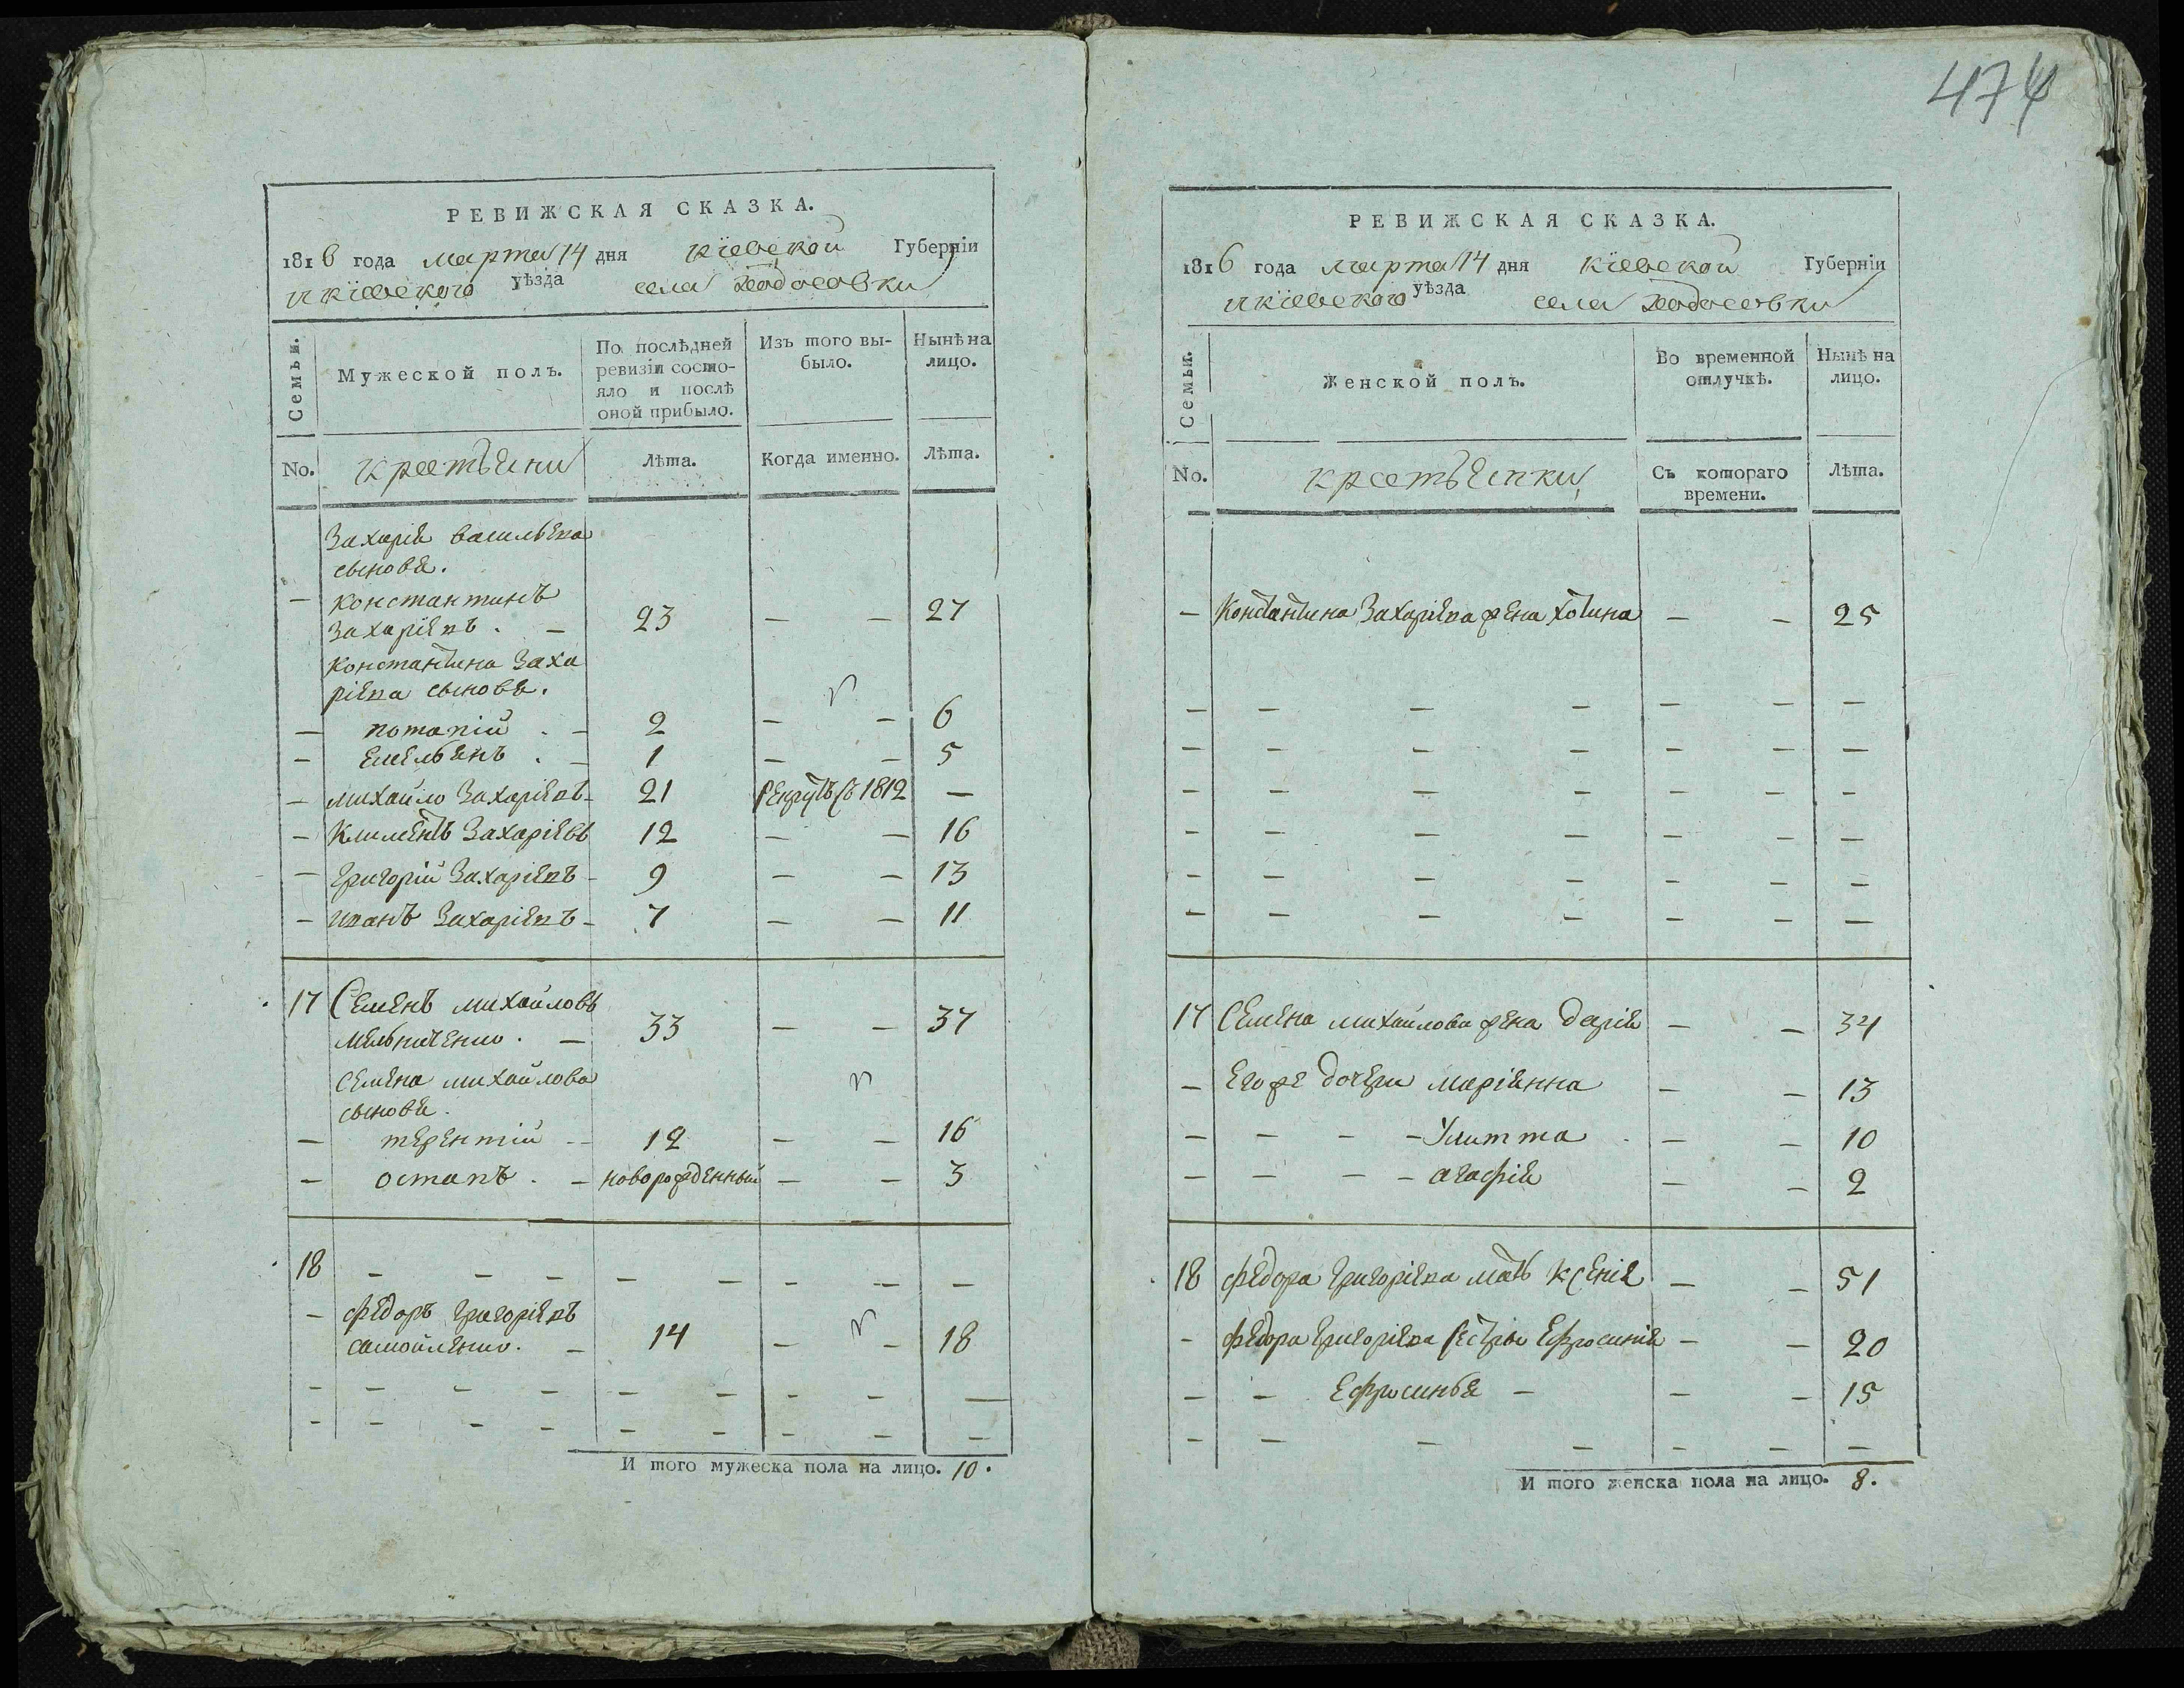 474
РЕВИЖСКАЯ СКАЗКА.
1816 года марта 14 дня кіевской Губерніи
и кіевского уѣзда села Ходосовки
Семьи. Мужеской полъ. По послѣдней ревизіи состояло и послѣ оной прибыло. Изъ того выбыло. Нынѣ на лицо.
No. крестьяни Лѣта. Когда именно. Лѣта.
Захарія васильева
сыновя.
— константинъ
Захаріевъ . — 23 — — 27
константина Заха
ріева сыновя.
— потапій . — 2 — — 6
— Емельянъ . — 1 — — 5
— михайло Захаріевъ — 21 рекрутъ съ 1812 —
— Климентъ Захаріевъ 12 — — 16
— григорій Захаріевъ — 9 — — 13
— иванъ Захаріевъ — 7 — — 11
17 Семенъ михайловъ
мельниченко . — 33 — — 37
семена михайлова
сыновя.
— терентій — — 12 — — 16
— остапъ . — новорожденный — — 3
18 — — — — — — — —
— федоръ григоріевъ
самойленко. — 14 — — 18
— — — — — — — — —
— — — — — — — — —
И того мужеска пола на лицо. 10.
РЕВИЖСКАЯ СКАЗКА.
1816 года марта 14 дня кіевской Губерніи
и кіевского уѣзда села Ходосовки
Семьи. Женской полъ. Во временной отлучкѣ. Нынѣ на лицо.
No. крестьянки Съ котораго времени. Лѣта.
— Константина Захаріева жена хотина — — 25
— — — — — — —
— — — — — — —
— — — — — — —
— — — — — — —
— — — — — — —
— — — — — — —
17 Семена михайлова жена дарія — — 34
— Его же дочери маріянна — — 13
— — — — Улитта . — — 10
— — — — агафія — — 2
18 федора григоріева мать ксенія — — 51
— федора григоріева сестры Ефросинія — — 20
— — Ефросинья — — — 15
— — — — — — —
И того женска пола на лицо. 8.